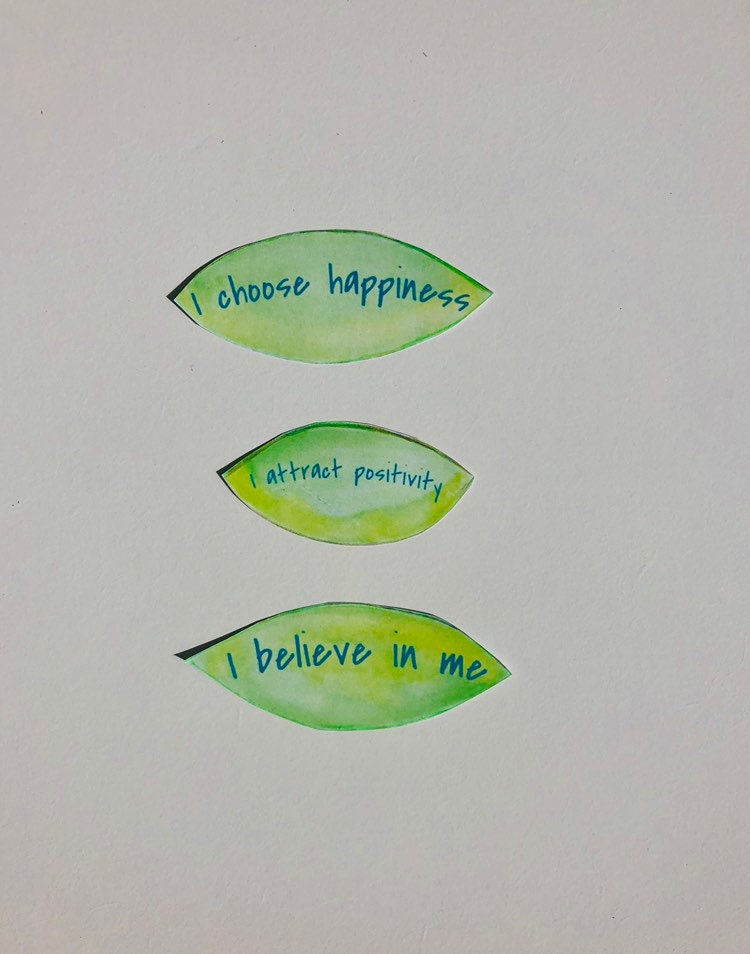 I choose happiness
I attract positivity
I believe in me